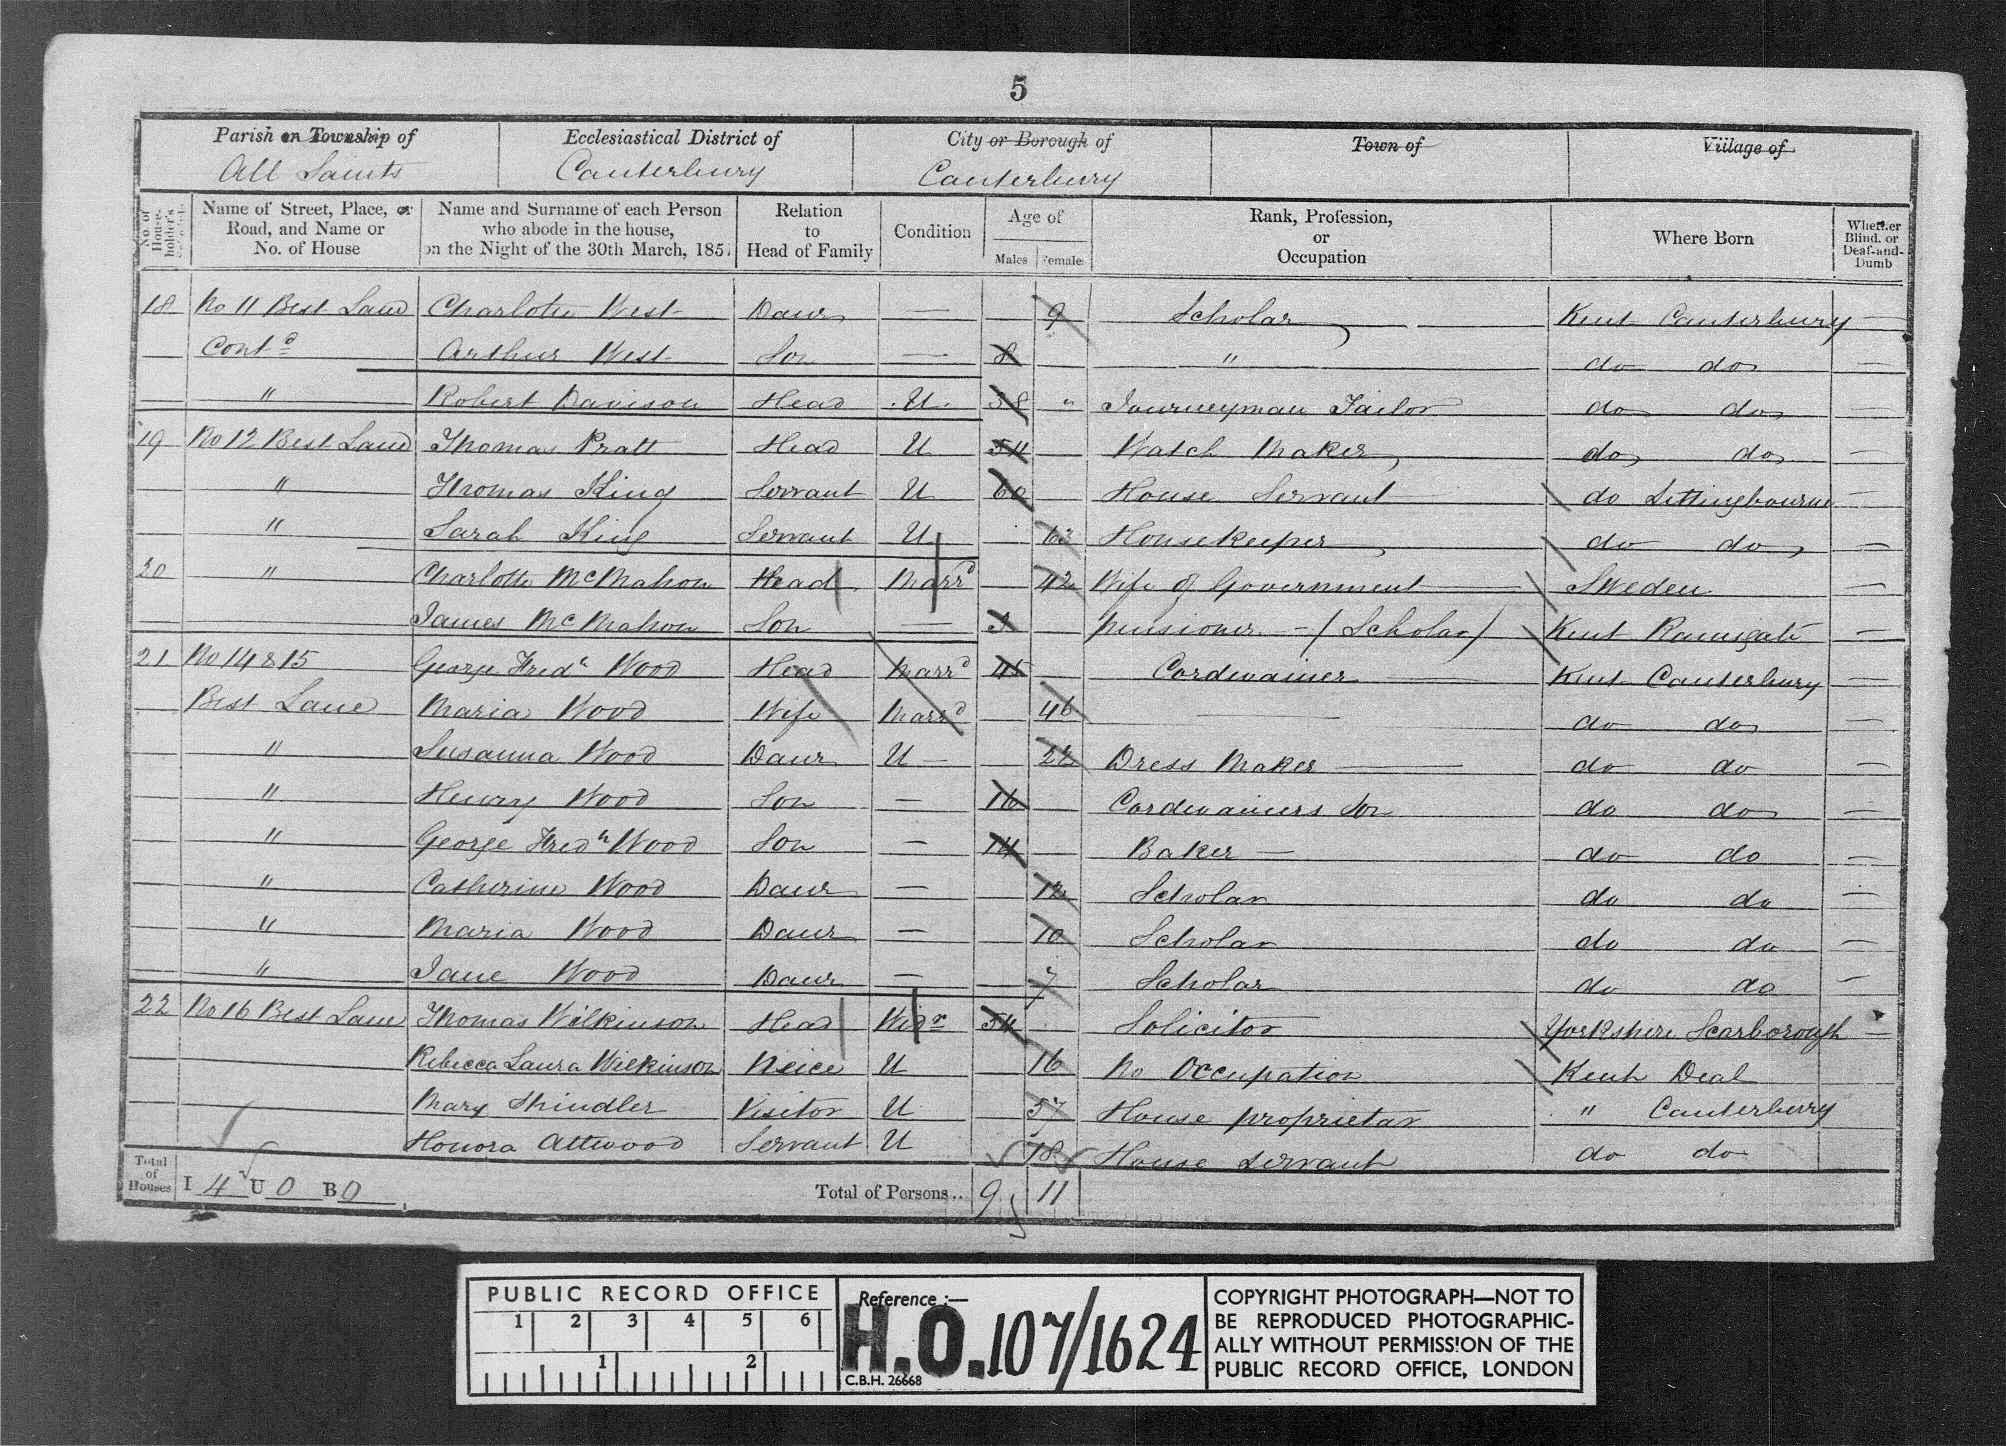 5
Parish or Township of Ecclesiastical District of City or Borough of Town of Village of
All Saints Canterbury Canterbury
No. of House-holder's Name of Street, Place, or Road, and Name or No. of House Name and Surname of each Person who abode in the house, on the Night of the 30th March, 1851 Relation to Head of Family Condition Age of Males Females Rank, Profession, or Occupation Where Born Whether Blind, or Deaf-and-Dumb
18 No 11 Best Lane Charlotte West Daur — 9 Scholar Kent Canterbury —
Contd Arthur West Son — 8 " do do —
" Robert Davison Head U 38 " Journeyman Tailor do do —
19 No 12 Best Lane Thomas Pratt Head U 54 Watch Maker do do —
" Thomas King Servant U 60 House Servant do Sittingbourne —
" Sarah King Servant U 63 Housekeeper do do —
20 " Charlotte McMahon Head Marrd 42 Wife of Government Sweden —
James McMahon Son — pensioner - (Scholar) Kent Ramsgate —
21 No 14 & 15 George Fredk Wood Head Marrd 45 Cordwainer Kent Canterbury —
Best Lane Maria Wood Wife Marrd 46 — do do —
" Susanna Wood Daur U — 22 Dress Maker do do —
" Henry Wood Son — 16 Cordwainers Son do do —
" George Fredk Wood Son — 14 Baker — do do —
" Catherine Wood Daur — 12 Scholar do do —
" Maria Wood Daur — 10 Scholar do do —
" Jane Wood Daur — 7 Scholar do do —
22 No 16 Best Lane Thomas Wilkinson Head Widr 54 Solicitor Yorkshire Scarborough —
Rebecca Laura Wilkinson Neice U 16 No Occupation Kent Deal
Mary Shindler Visitor U 57 House proprietor " Canterbury
Honora Attwood Servant U 18 House Servant do do
Total of Houses I 4 U 0 B 0 Total of Persons.. 9 11
PUBLIC RECORD OFFICE
1 2 3 4 5 6
1 2
Reference :—
H.O. 107/1624
C.B.H. 26668
COPYRIGHT PHOTOGRAPH—NOT TO
BE REPRODUCED PHOTOGRAPHIC-
ALLY WITHOUT PERMISSION OF THE
PUBLIC RECORD OFFICE, LONDON